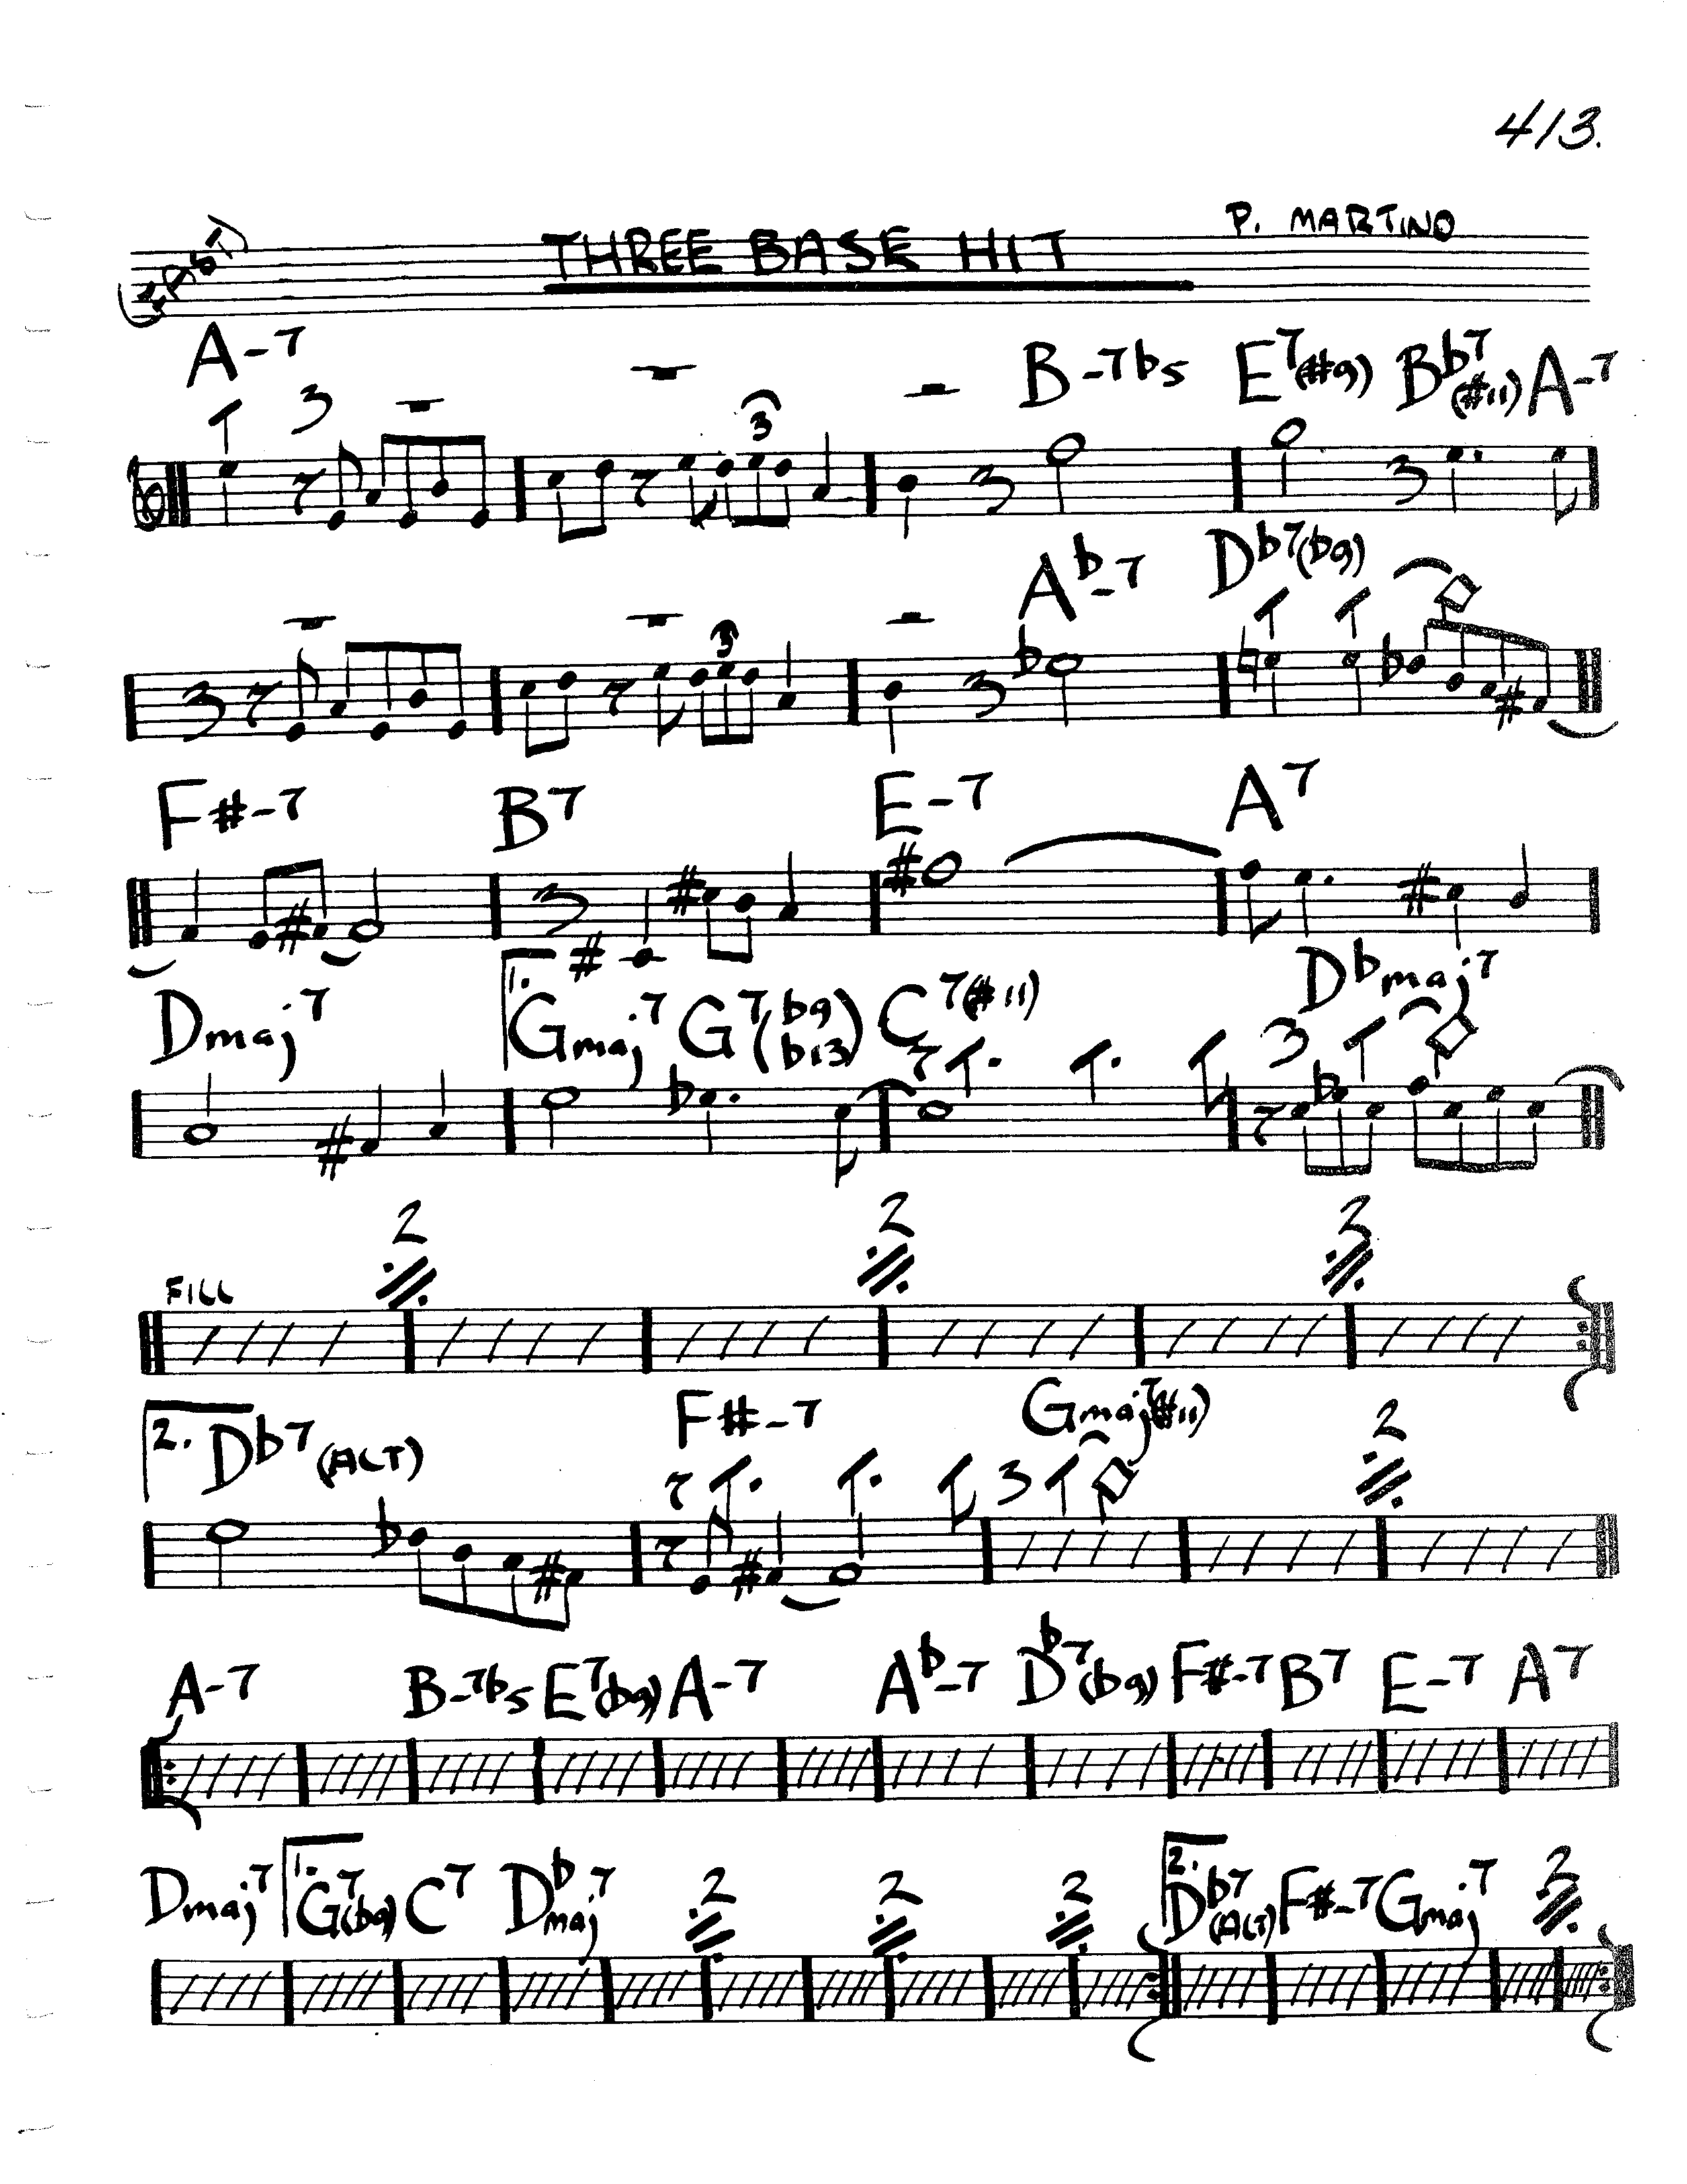 413.
(FAST)
THREE BASE HIT
P. MARTINO
A-7 B-7b5 E7(#9) Bb7(#11) A-7
3
Ab-7 Db7(b9)
3
F#-7 B7 E-7 A7
Dmaj7 1. Gmaj7 G7(b9 b13) C7(#11) Dbmaj7
2 2 2
FILL
2. Db7(ALT) F#-7 Gmaj7(#11) 2
A-7 B-7b5 E7(b9) A-7 Ab-7 Db7(b9) F#-7 B7 E-7 A7
Dmaj7 1. G7(b9) C7 Dbmaj7 2 2 2 2. Db7(ALT) F#-7 Gmaj7 2